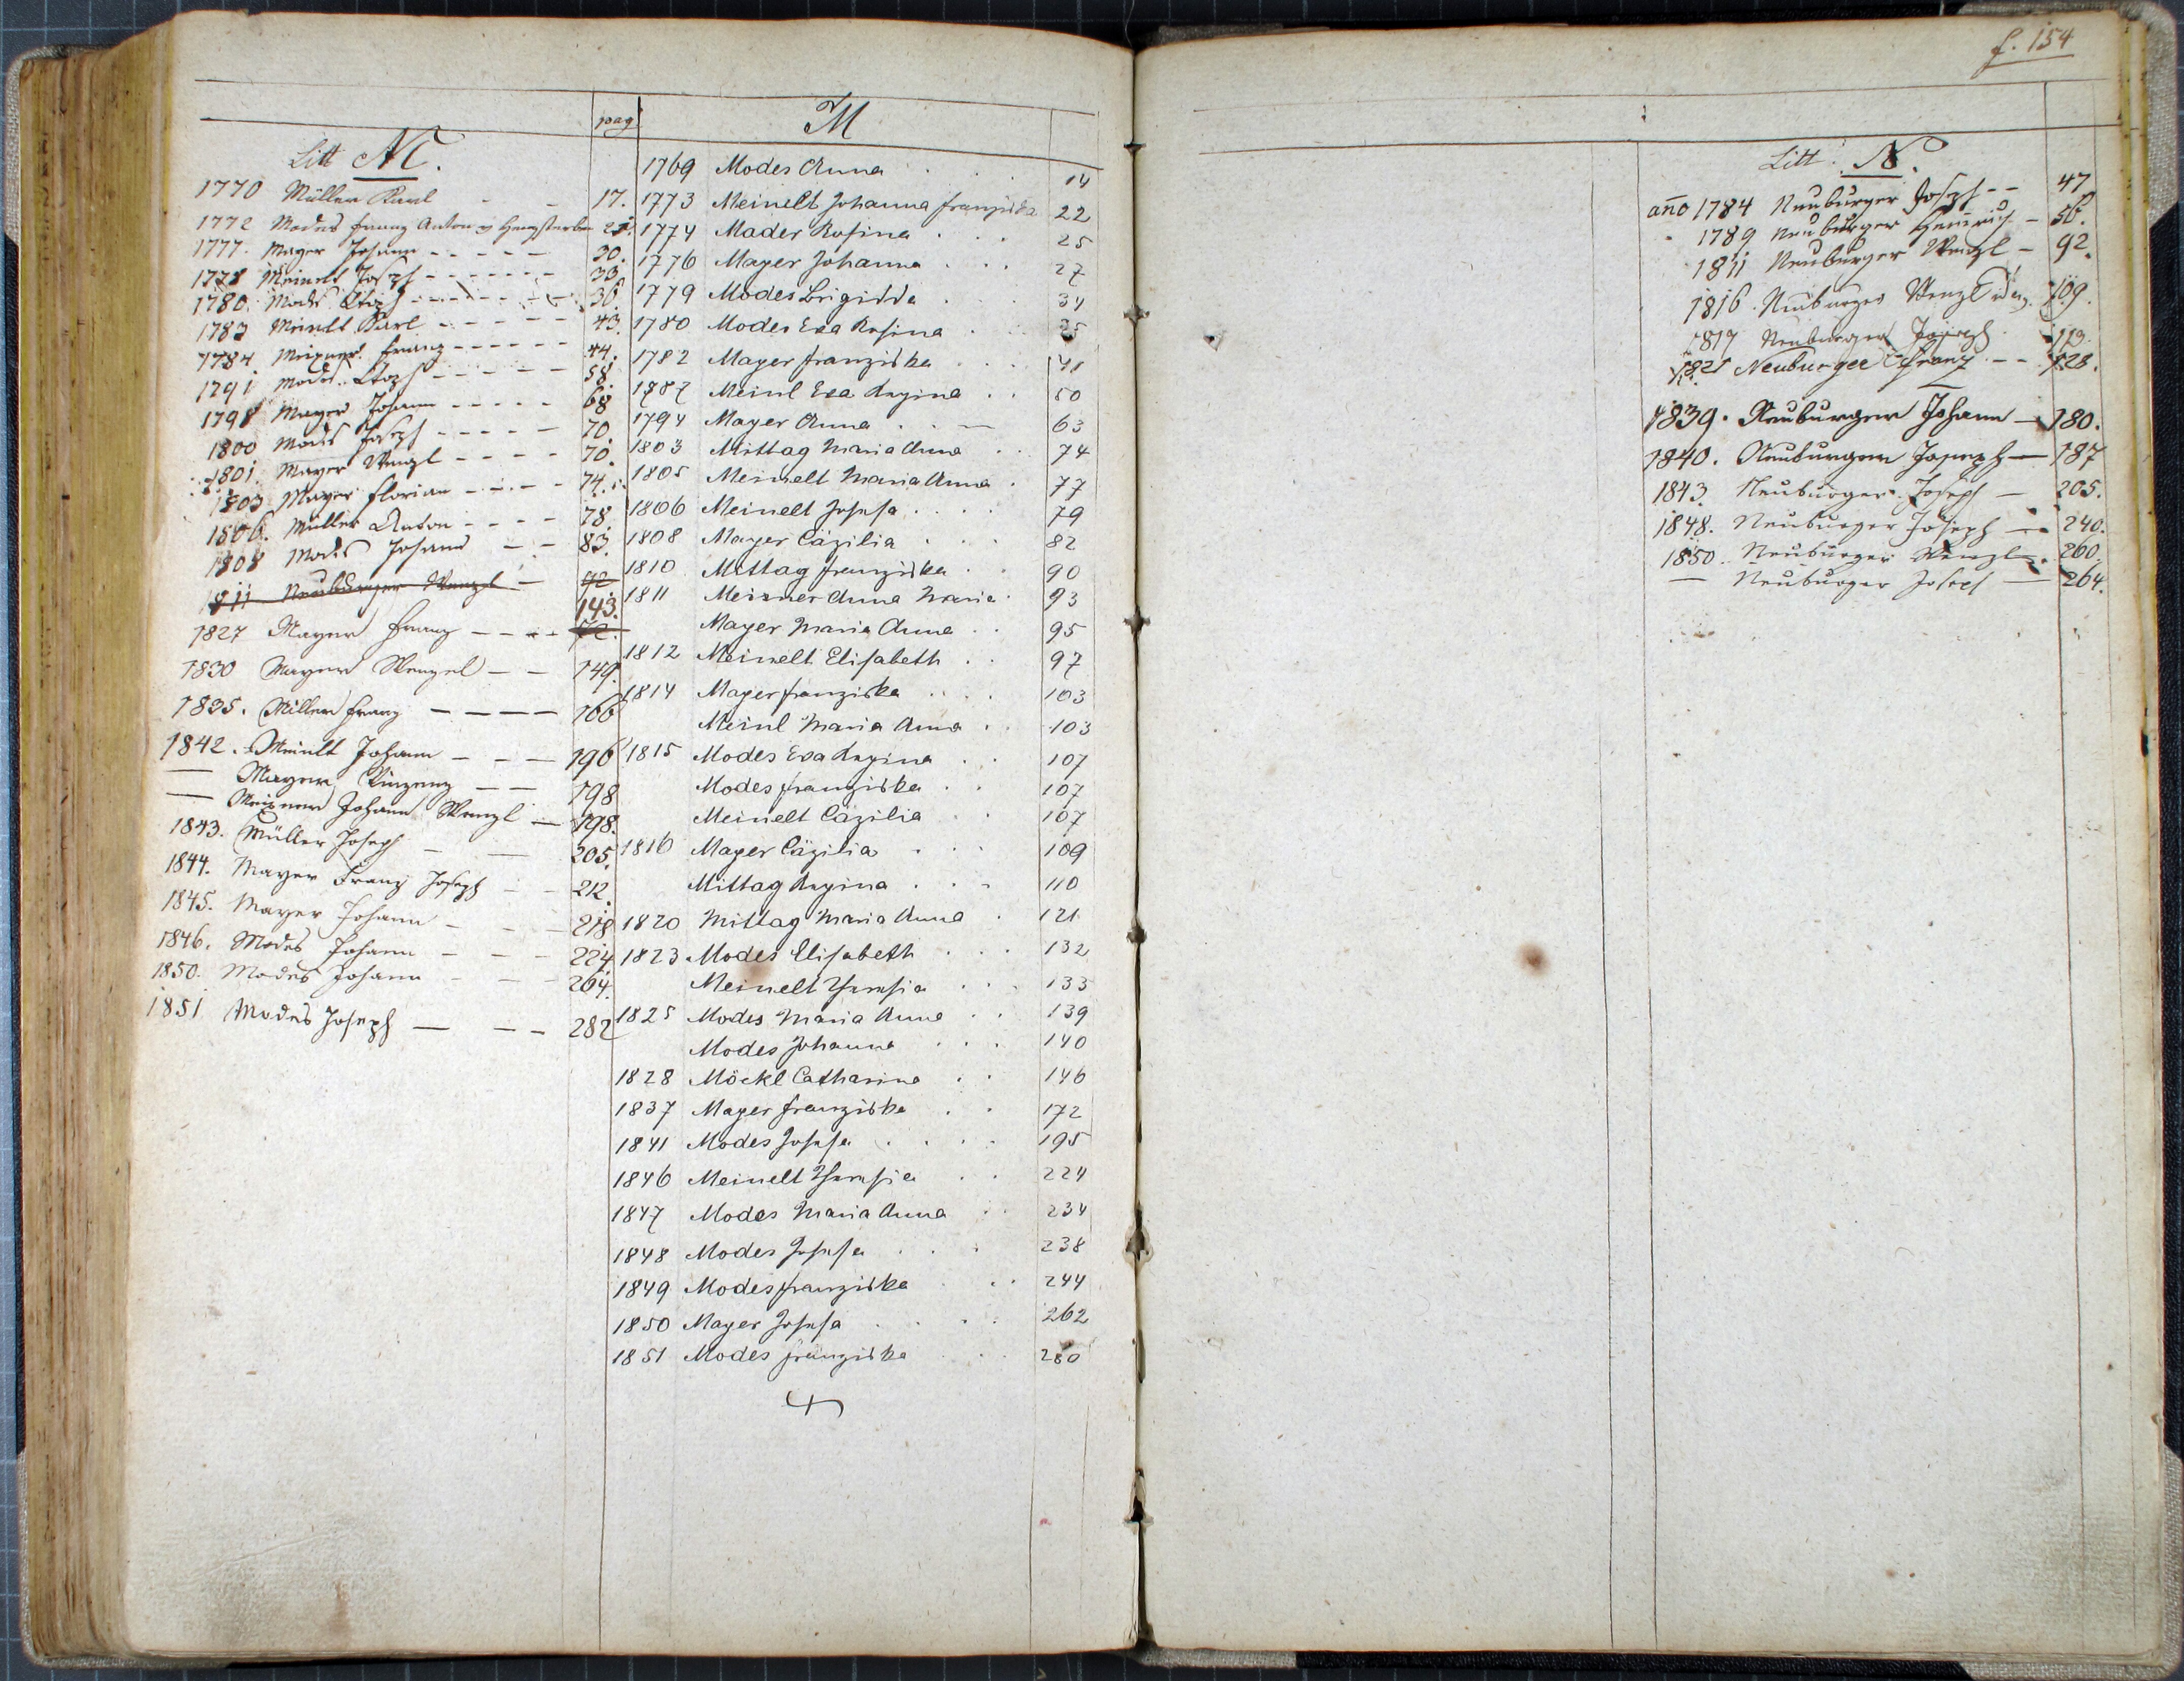 pag
Litt M.
1770 Müller Karl - - 17.
1772 Modes Franz Anton 21.
1777. Mayer Johann - - - - - 30.
1778 Meinelt Joseph - - - - - - 33.
1780. Modes - - - - - - 36
1783 Meinelt Karl - - - - - 43.
1784. Meixner Franz - - - - - - 44.
1791 Modes - - - - - 58.
1798 Mayer Johann - - - - - 68
1800 Modes Joseph - - - - - 70.
1801. Mayer Wenzl - - - - 70.
1803 Mayer Florian - - - - 74.
1806. Müller Anton - - - - 78.
1808 Modes Johann - - 83.
1811 Neuburger Wenzl - 92
143.
1827 Mayer Franz - - - - 72.
1830 Mayer Wenzel - - 149.
1835. Miller Franz - - - - 166
1842. Meinelt Johann - - - 196
— Mayer Vinzenz - - 198
— Meixner Johann Wenzl - 198.
1843. Müller Joseph - - 205.
1844. Mayer Franz Joseph - - 212.
1845. Mayer Johann - - - 218
1846. Modes Johann - - - 224
1850. Modes Johann - - - 264.
1851 Modes Joseph - - - 282
M
1769 Modes Anna . . . 14
1773 Meinelt Johanna Franziska 22
1774 Mader Rosina . . . 25
1776 Mayer Johanna . . . 27
1779 Modes Brigitta . . . 34
1780 Modes Eva Rosina . 35
1782 Mayer Franziska . . . 41
1787 Meinl Eva Regina . . 50
1794 Mayer Anna . . — 63
1803 Mittag Maria Anna . . 74
1805 Meinelt Maria Anna . 77
1806 Meinelt Josefa . . . . 79
1808 Mayer Cäzilia . . . 82
1810 Mittag Franziska . . 90
1811 Meixner Anna Maria . 93
Mayer Maria Anna . . 95
1812 Meinelt Elisabeth . . 97
1814 Mayer Franziska . . . 103
Meinl Maria Anna . . 103
1815 Modes Eva Regina . . 107
Modes Franziska . . 107
Meinelt Cäzilia . . 107
1816 Mayer Cäzilia . . . 109
Mittag Regina . . . 110
1820 Mittag Maria Anna . 121
1823 Modes Elisabeth . . . 132
Meinelt Theresia . . . 133
1825 Modes Maria Anna . . 139
Modes Johanna . . . 140
1828 Möckl Catharina . . 146
1837 Mayer Franziska . . 172
1841 Modes Josefa . . . . 195
1846 Meinelt Theresia . . 224
1847 Modes Maria Anna . . 234
1848 Modes Josefa . . . 238
1849 Modes Franziska . . . 244
1850 Mayer Josefa . . . . 262
1851 Modes Franziska . . . 280
f. 154
Litt. N.
año 1784 Neuburger Joseph - - 47
1789 Neuburger Heinrich - 56.
1811 Neuburger Wenzl - 92.
1816. Neuburger Wenzl 109.
1817 Neuburger Joseph 113.
1821 Neuburger Franz - - 128.
1839. Neuburger Johann - 180.
1840. Neuburger Joseph — 187
1843. Neuburger Joseph — 205.
1848. Neuburger Joseph — 240.
1850. Neuburger Wenzl - 260.
— Neuburger Joseph — 264.